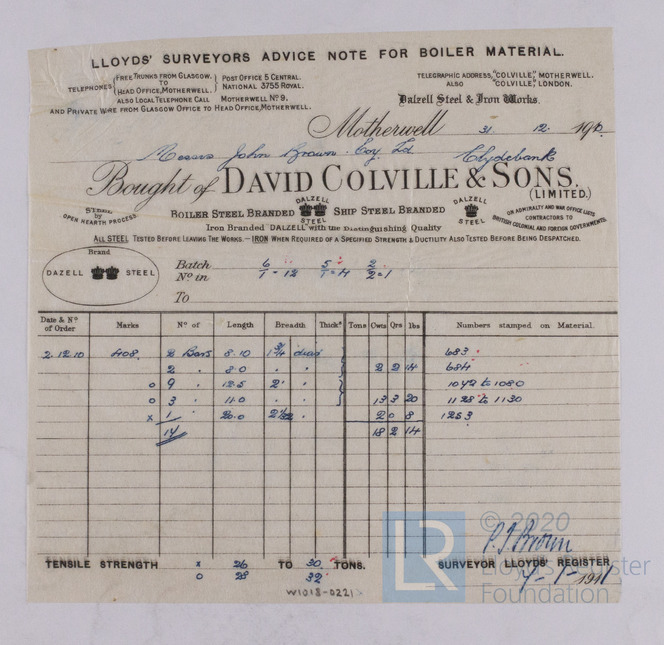 LLOYDS' SURVEYORS ADVICE NOTE FOR BOILER MATERIAL.
TELEPHONES FREE TRUNKS FROM GLASGOW. TO HEAD OFFICE, MOTHERWELL. POST OFFICE 5 CENTRAL. NATIONAL 3755 ROYAL.
ALSO LOCAL TELEPHONE CALL MOTHERWELL No 9.
AND PRIVATE WIRE FROM GLASGOW OFFICE TO HEAD OFFICE, MOTHERWELL.
TELEGRAPHIC ADDRESS, "COLVILLE", MOTHERWELL.
ALSO "COLVILLE", LONDON.
Dalzell Steel & Iron Works.
Motherwell 31 12 1910
Messrs John Brown Coy Ld Clydebank
Bought of DAVID COLVILLE & SONS.
(LIMITED.)
STEEL by OPEN HEARTH PROCESS.
BOILER STEEL BRANDED DALZELL STEEL SHIP STEEL BRANDED DALZELL STEEL
ON ADMIRALTY AND WAR OFFICE LISTS
CONTRACTORS TO
BRITISH COLONIAL AND FOREIGN GOVERNMENTS.
Iron Branded "DALZELL" with the Distinguishing Quality
ALL STEEL TESTED BEFORE LEAVING THE WORKS.—IRON WHEN REQUIRED OF A SPECIFIED STRENGTH & DUCTILITY ALSO TESTED BEFORE BEING DESPATCHED.
Brand
DAZELL STEEL
Batch 6 5 2
No in 1-12 1-4 2-1
To
Date & No of Order Marks No of Length Breadth Thicks Tons Cwts Qrs lbs Numbers stamped on Material.
2.12.10 408. 2 Bars 8.10 1¾ diar 683
2 " 8.0 " " 2 2 14 684
o 9 " 12.5 2" " 1072 to 1080
o 3 " 11.0 " " 13 3 20 1128 to 1130
x 1 " 20.0 2 0 8 1253
14 18 2 14
P.J. Brown
TENSILE STRENGTH x 26 TO 30 TONS. SURVEYOR LLOYDS' REGISTER
o 28 32 1911
W1018-0221
LR
© 2020
Lloyd's Register
Foundation